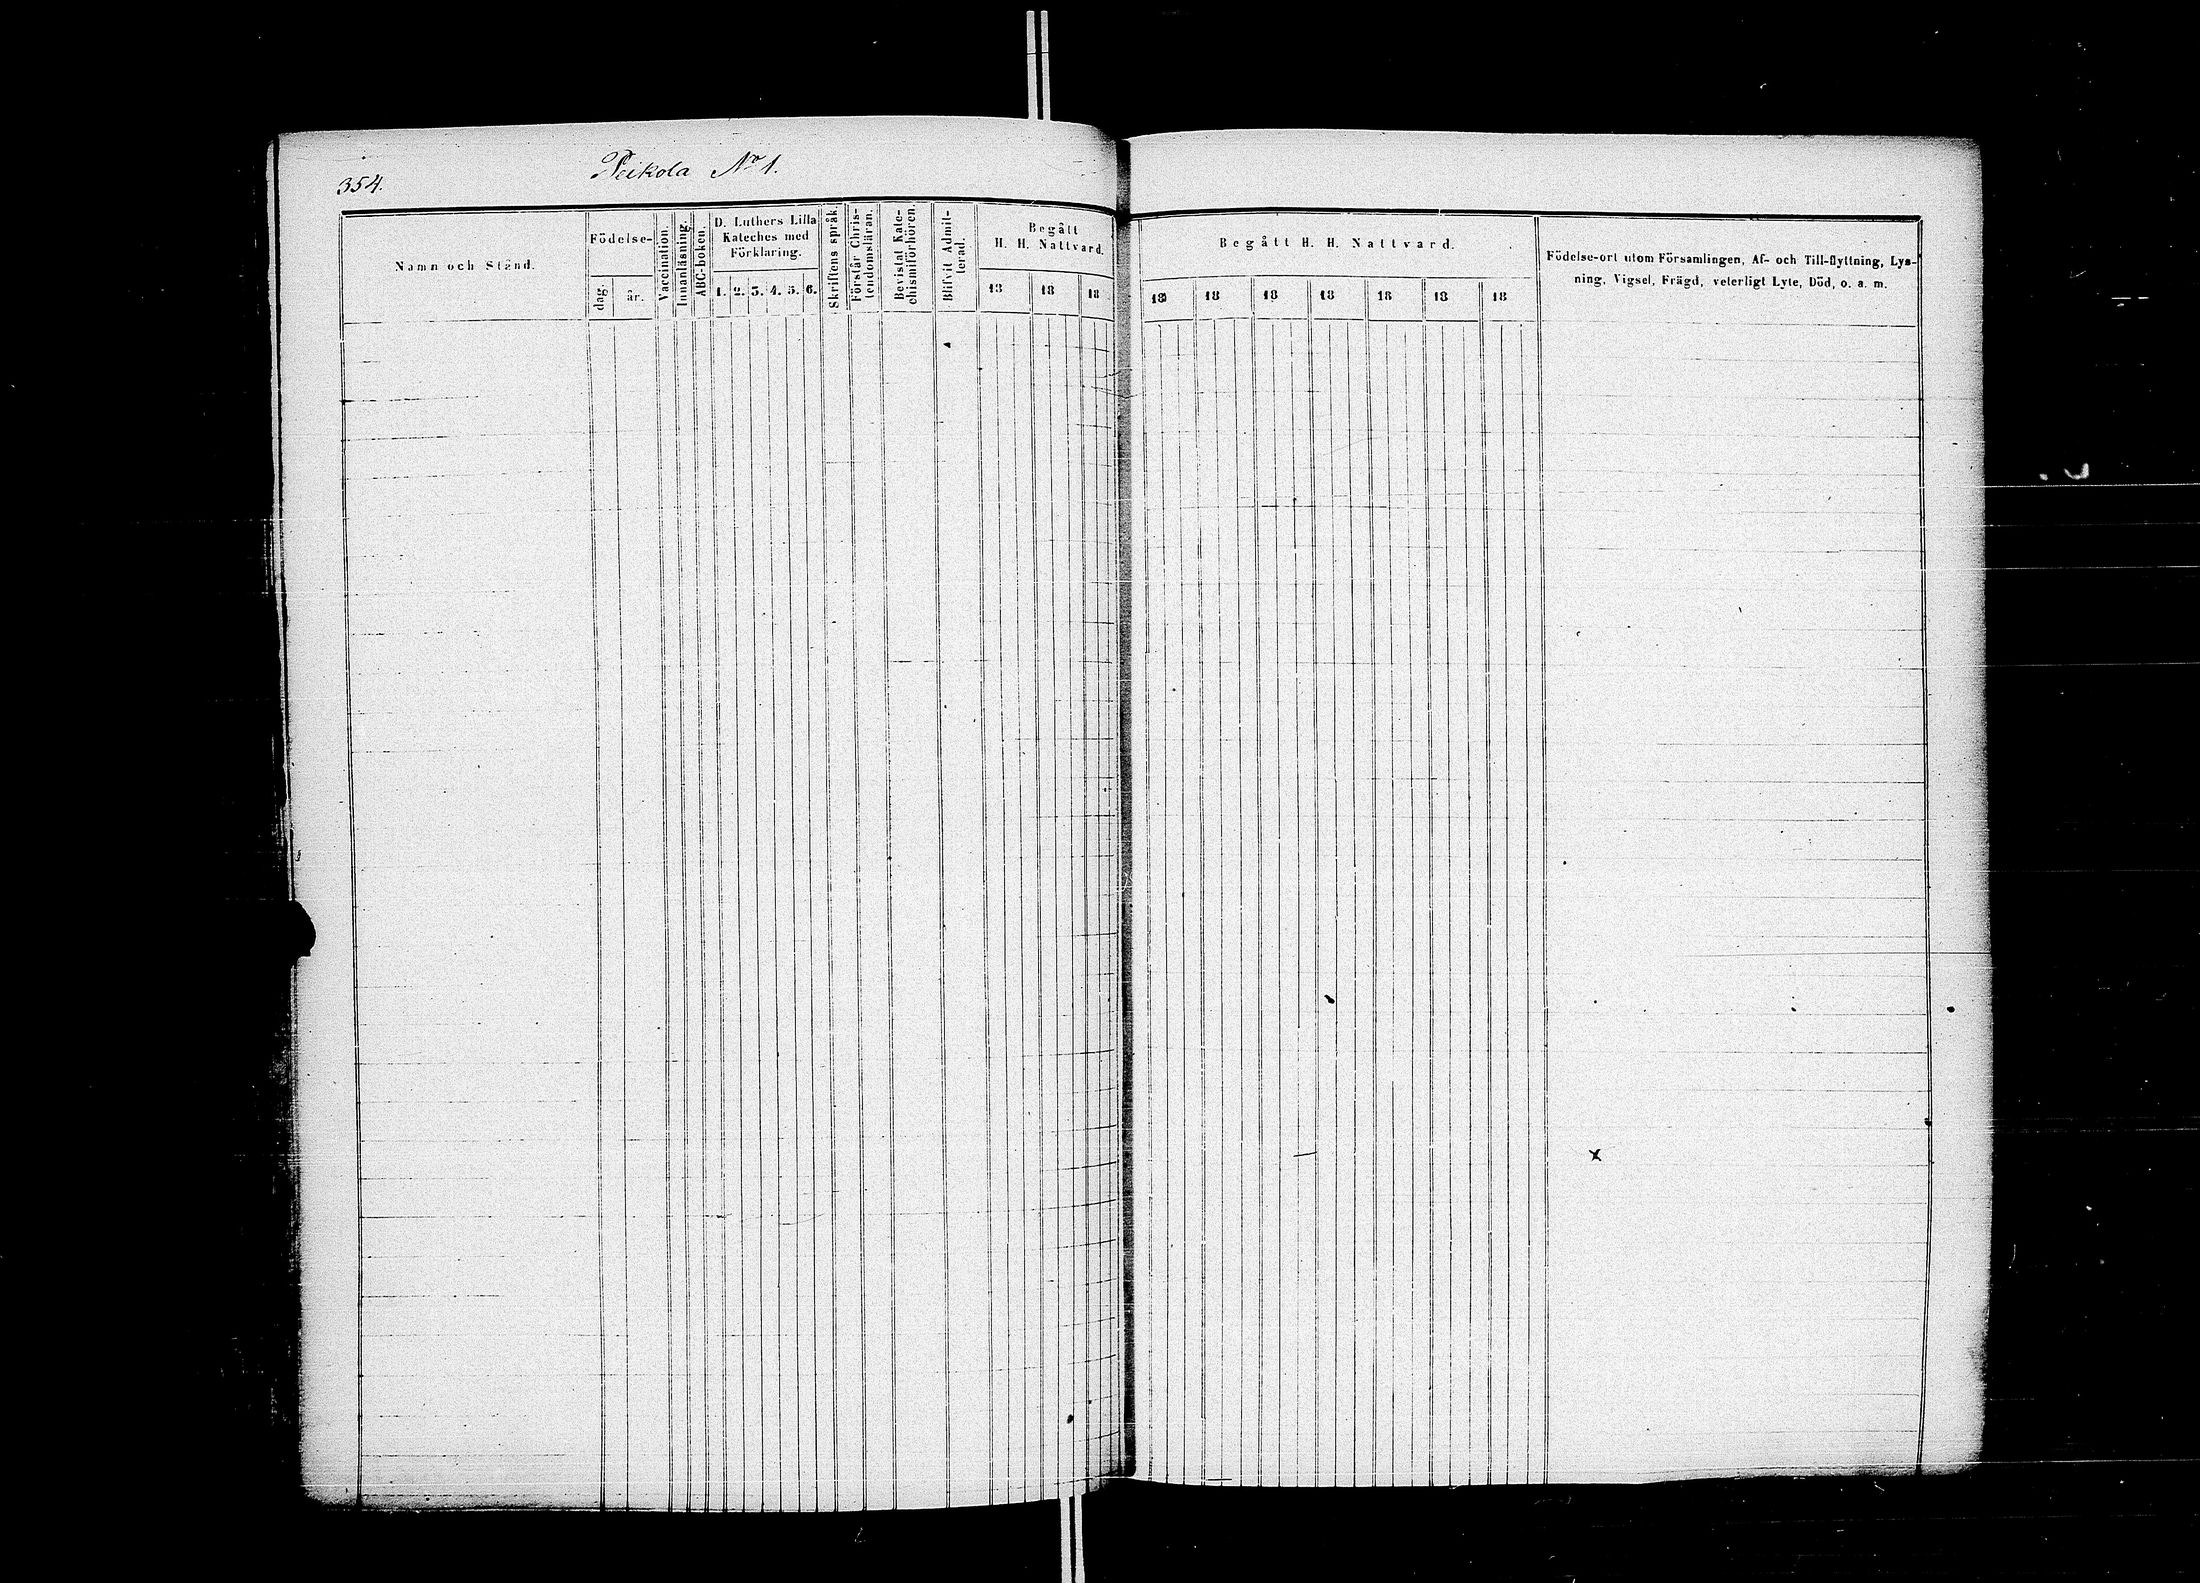 354.
Peikola No 1.
Namn och Stånd.
Födelse-
dag.
år.
Vaccination.
Innanläsning.
ABC-boken.
D. Luthers Lilla
Kateches med
Förklaring.
1. 2. 3. 4. 5. 6.
Skriftens språk.
Förstår Chris-
tendomsläran.
Bevistat Kate-
chismiförhören.
Blifvit Admit-
terad.
Begått
H. H. Nattvard.
18 18 18
Begått H. H. Nattvard.
18 18 18 18 18 18 18
Födelse-ort utom Församlingen, Af- och Till-flyttning, Lys-
ning, Vigsel, Frägd, veterligt Lyte, Död, o. a. m.